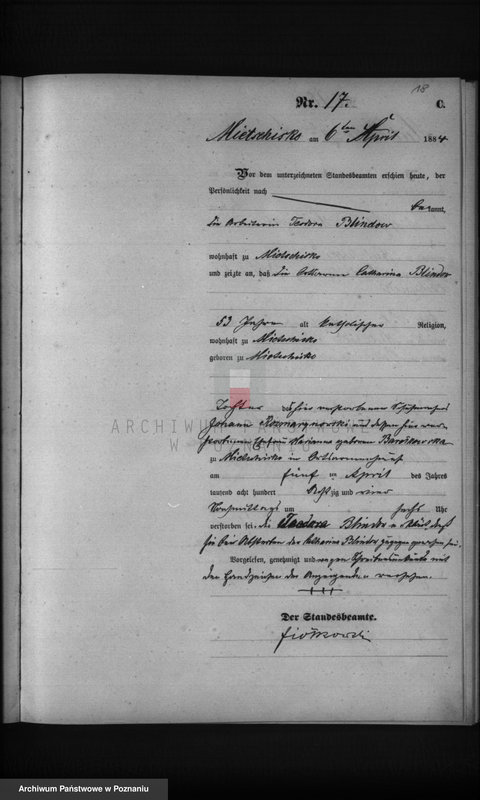 18
Nr. 17. C.
Mietschisko am 6ten April 1884
Vor dem unterzeichneten Standesbeamten erschien heute, der
Persönlichkeit nach
bekannt,
die Arbeiterin Teodora Blindow
wohnhaft zu Mietschisko
und zeigte an, daß die Ortsarme Catharina Blindow
53 Jahre alt katholischer Religion,
wohnhaft zu Mietschisko
geboren zu Mietschisko
Tochter des hier verstorbenen
Johann Rozmarynowski und dessen hier
verstorbenen Ehefrau Marianna geborene
zu Mietschisko im Ortsarmenhause
am fünf ten April des Jahres
tausend acht hundert achtzig und vier
Vormittags um sechs Uhr
verstorben sei. die Teodora Blindow
sie bei Absterben der Catharina Blindow zugegen gewesen sei.
Vorgelesen, genehmigt und wegen Schreibensunkunde mit
den Handzeichen der Anzeigenden versehen.
+++
Der Standesbeamte.
ARCHIWUM PAŃSTWOWE
W POZNANIU
Archiwum Państwowe w Poznaniu